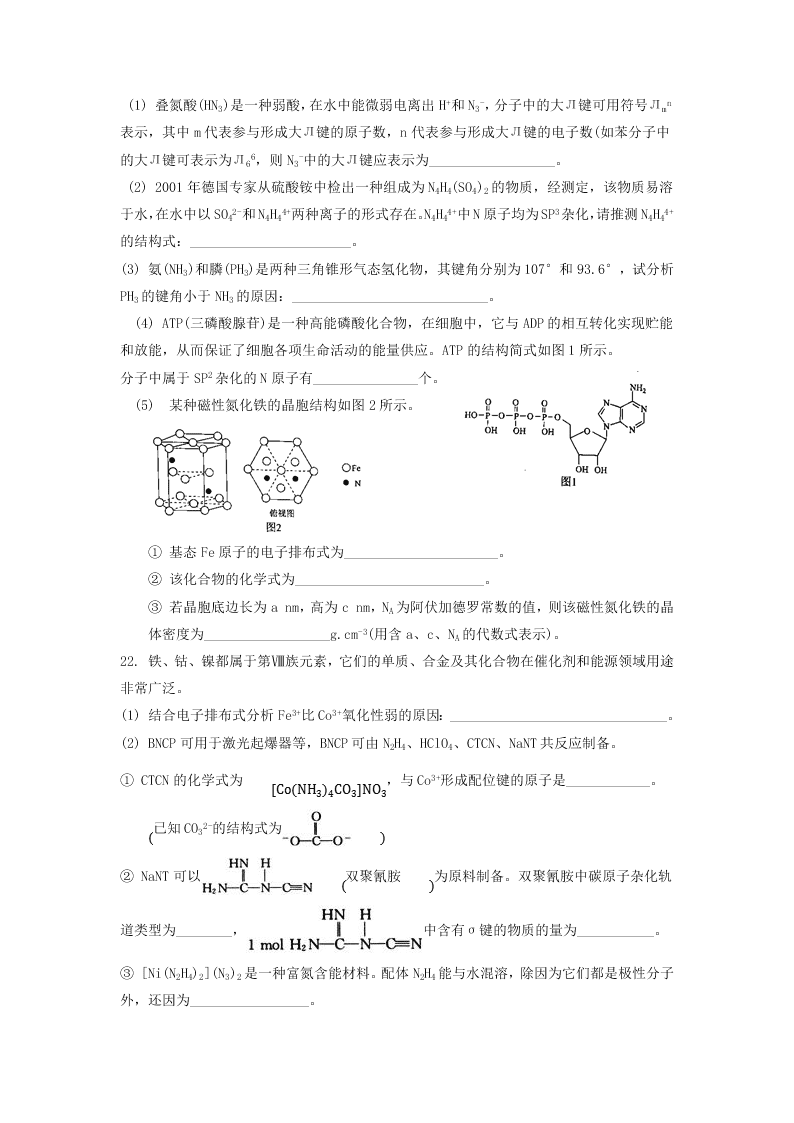 (1) 叠氮酸(HN₃)是一种弱酸,在水中能微弱电离出 H⁺和 N₃⁻,分子中的大Л键可用符号Лₘⁿ
表示,其中 m 代表参与形成大Л键的原子数,n 代表参与形成大Л键的电子数(如苯分子中
的大Л键可表示为Л₆⁶,则 N₃⁻中的大Л键应表示为__________________。
(2) 2001 年德国专家从硫酸铵中检出一种组成为 N₄H₄(SO₄)₂的物质,经测定,该物质易溶
于水,在水中以 SO₄²⁻和 N₄H₄⁴⁺两种离子的形式存在。N₄H₄⁴⁺中 N 原子均为 SP³杂化,请推测 N₄H₄⁴⁺
的结构式:_______________________。
(3) 氨(NH₃)和膦(PH₃)是两种三角锥形气态氢化物,其键角分别为 107°和 93.6°,试分析
PH₃的键角小于 NH₃的原因:____________________________。
(4) ATP(三磷酸腺苷)是一种高能磷酸化合物,在细胞中,它与 ADP 的相互转化实现贮能
和放能,从而保证了细胞各项生命活动的能量供应。ATP 的结构简式如图 1 所示。
分子中属于 SP²杂化的 N 原子有_______________个。
(5) 某种磁性氮化铁的晶胞结构如图 2 所示。
NH₂
N N
N N
O O O
HO-P-O-P-O-P-O
OH OH OH
O
OH OH
图1
Fe
N
俯视图
图2
① 基态 Fe 原子的电子排布式为______________________。
② 该化合物的化学式为___________________________。
③ 若晶胞底边长为 a nm,高为 c nm,N_A为阿伏加德罗常数的值,则该磁性氮化铁的晶
体密度为__________________g.cm⁻³(用含 a、c、N_A的代数式表示)。
22. 铁、钴、镍都属于第Ⅷ族元素,它们的单质、合金及其化合物在催化剂和能源领域用途
非常广泛。
(1) 结合电子排布式分析 Fe³⁺比 Co³⁺氧化性弱的原因:_______________________________。
(2) BNCP 可用于激光起爆器等,BNCP 可由 N₂H₄、HClO₄、CTCN、NaNT 共反应制备。
① CTCN 的化学式为 [Co(NH₃)₄CO₃]NO₃,与 Co³⁺形成配位键的原子是____________。
(己知 CO₃²⁻的结构式为 ⁻O-C-O⁻ )
O
② NaNT 可以 H₂N-C-N-C≡N (双聚氰胺 )为原料制备。双聚氰胺中碳原子杂化轨
HN H
道类型为________, 1 mol H₂N-C-N-C≡N 中含有σ键的物质的量为___________。
HN H
③ [Ni(N₂H₄)₂](N₃)₂是一种富氮含能材料。配体 N₂H₄能与水混溶,除因为它们都是极性分子
外,还因为_________________。